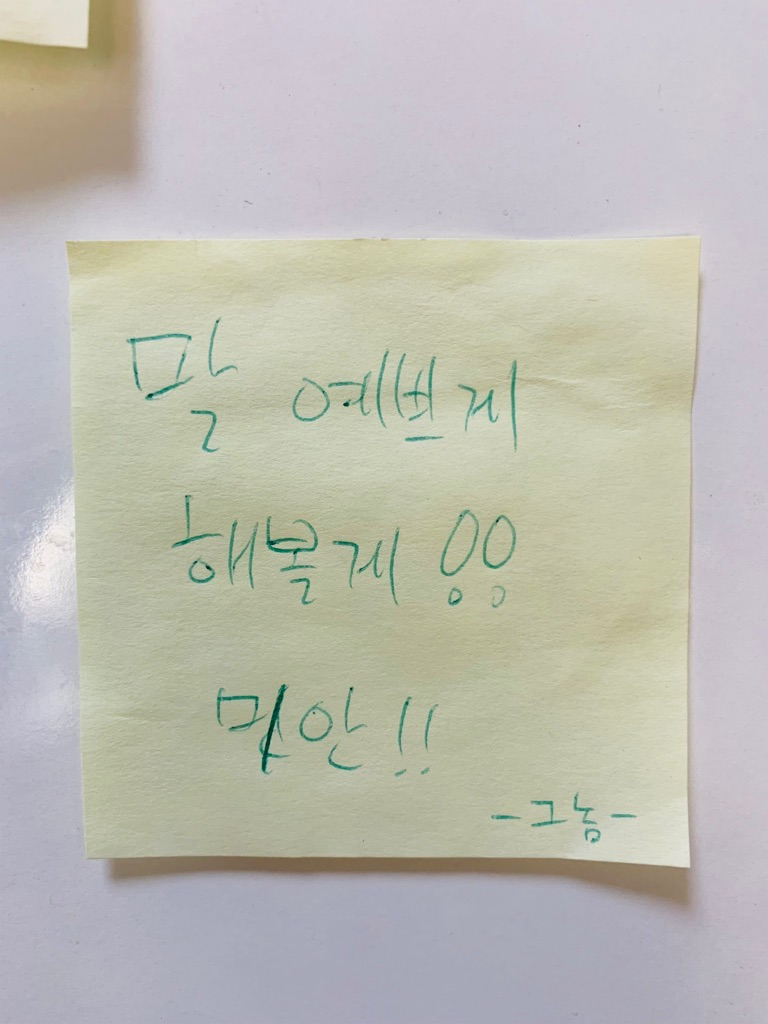 말 예쁘게
해볼게 !!
미안!!
-그놈-